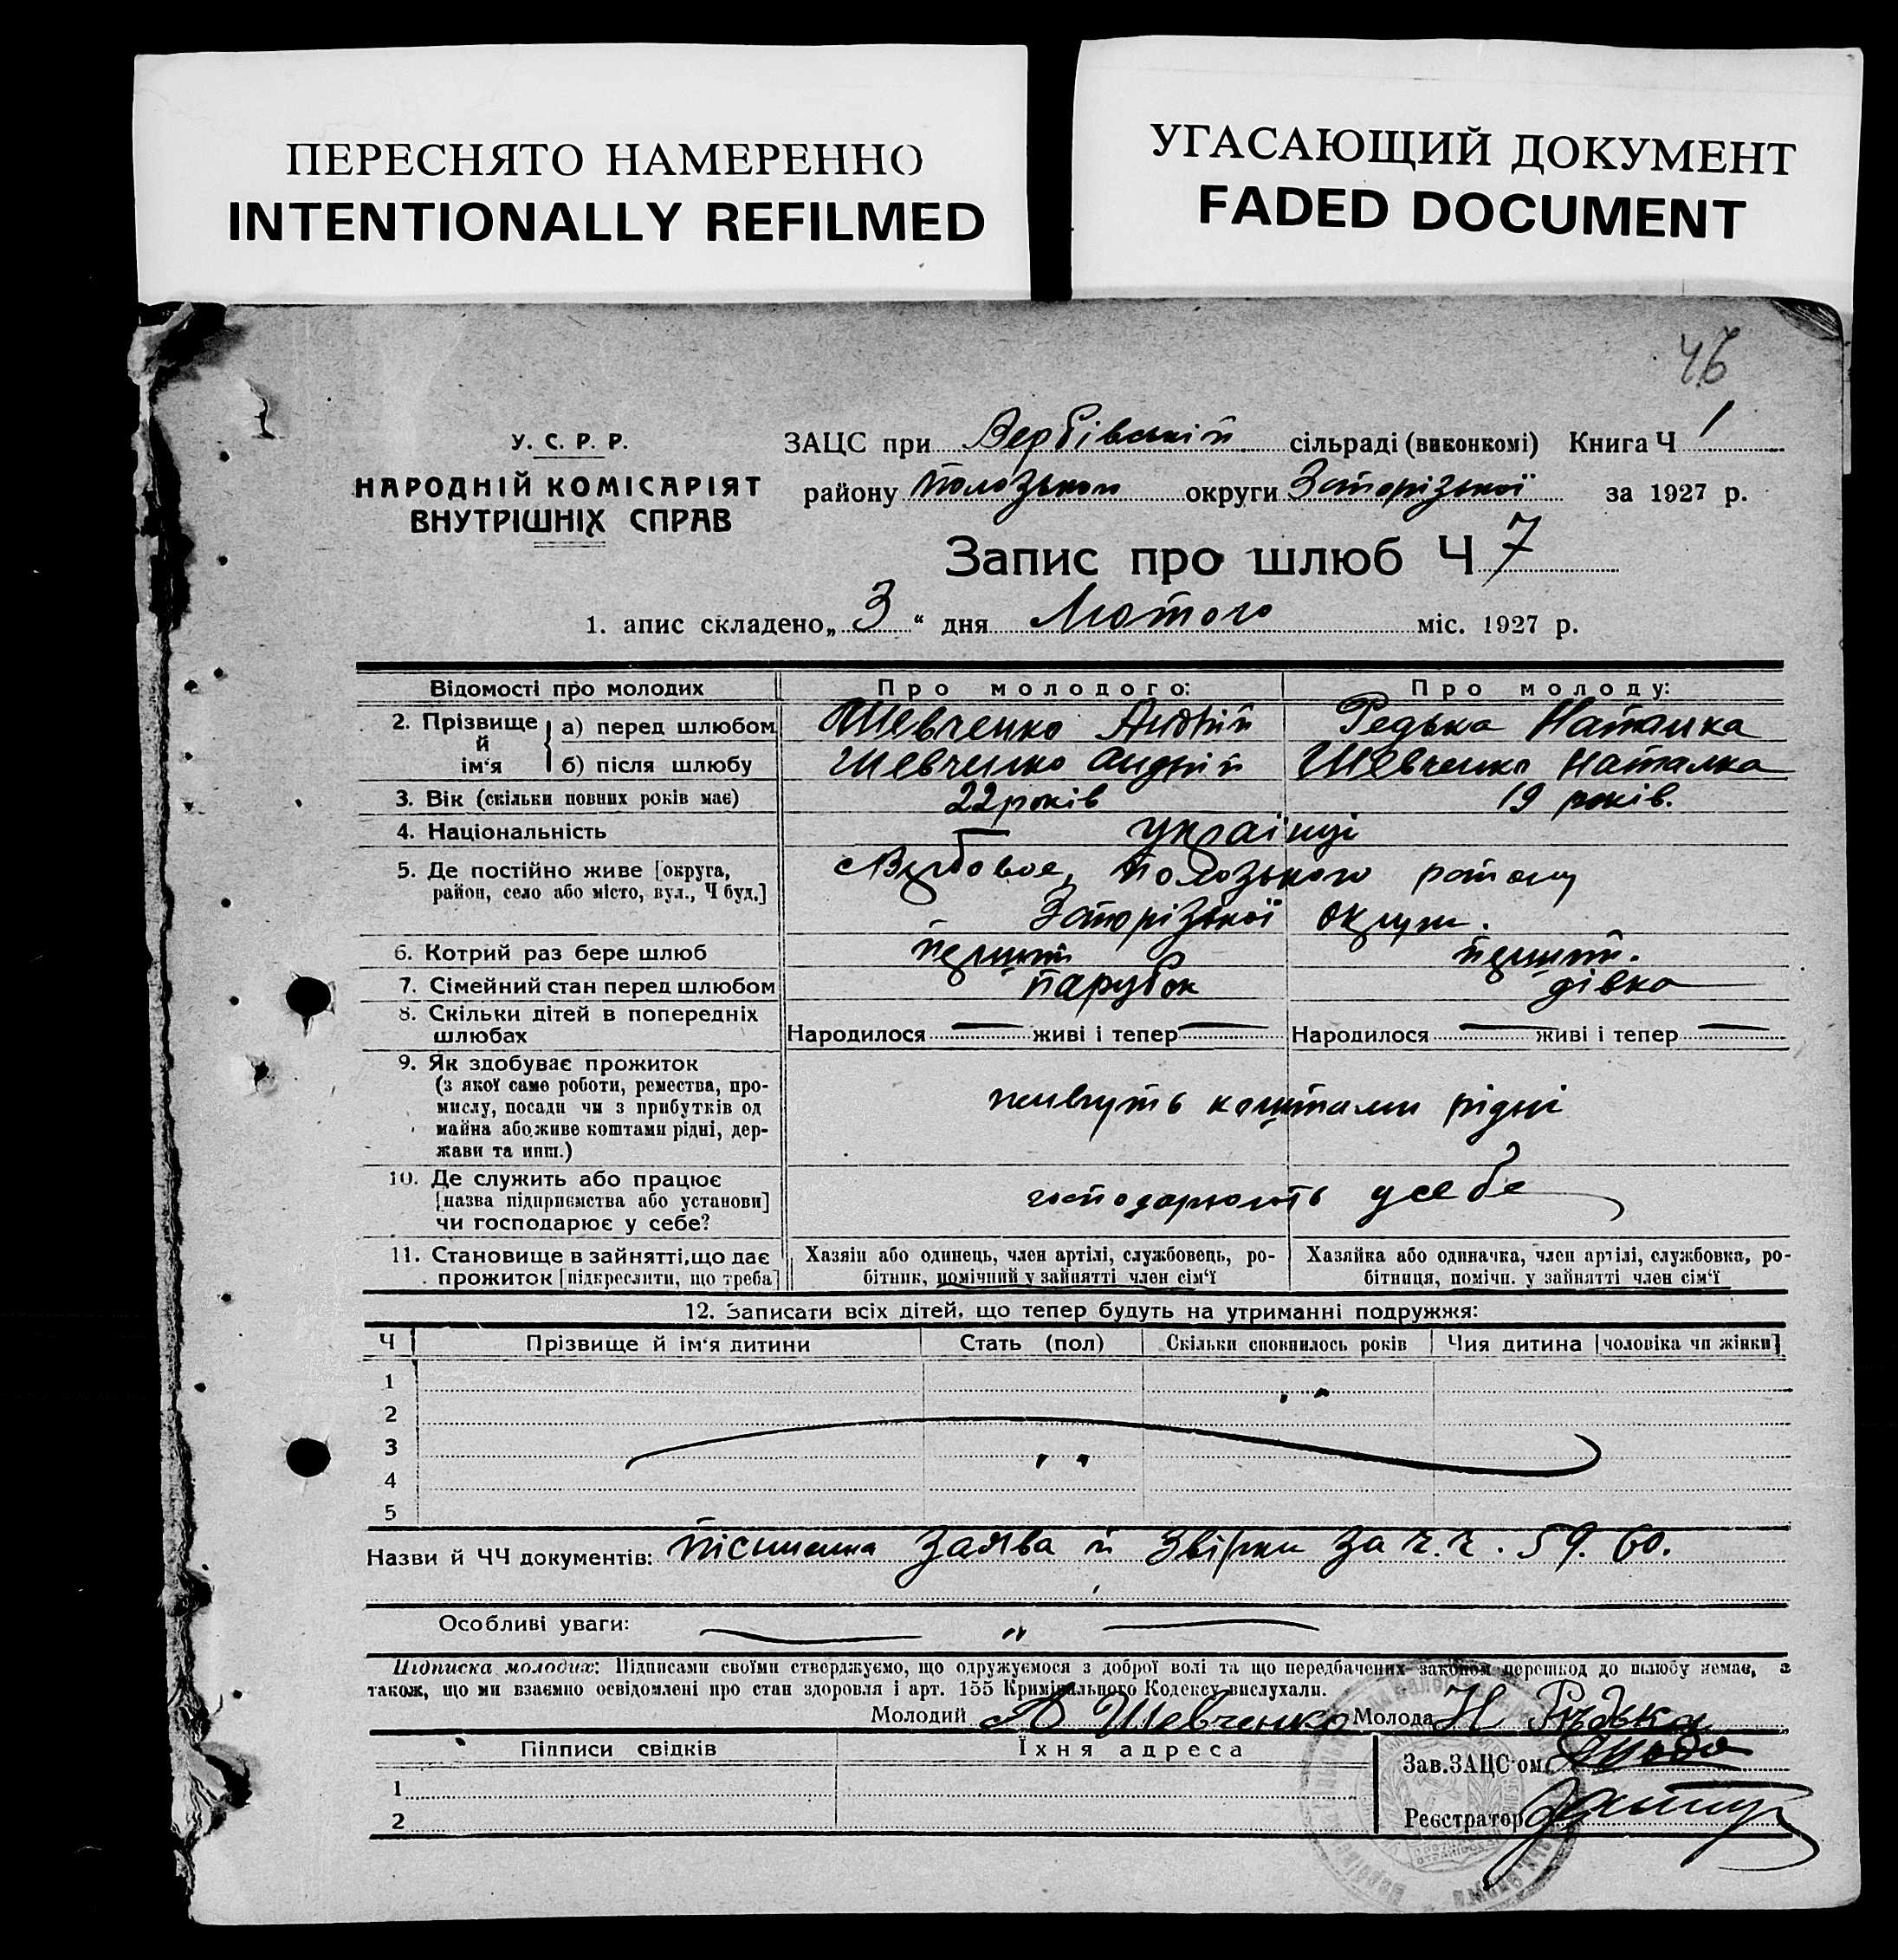 ПЕРЕСНЯТО НАМЕРЕННО
INTENTIONALLY REFILMED
УГАСАЮЩИЙ ДОКУМЕНТ
FADED DOCUMENT
46
У. С. Р. Р.
НАРОДНІЙ КОМІСАРІЯТ
ВНУТРІШНІХ СПРАВ
ЗАЦС при Вербівській сільраді (виконкомі) Книга Ч 1
району Полозького округи Запорізької за 1927 р.
Запис про шлюб Ч 7
1. апис складено „ 3 “ дня Лютого міс. 1927 р.
Відомості про молодих Про молодого: Про молоду:
2. Прізвище й ім‘я а) перед шлюбом Шевченко Андрій Редька Наталка
б) після шлюбу Шевченко Андрій Шевченко Наталка
3. Вік (скільки повних років має) 22 років 19 років.
4. Національність українці
5. Де постійно живе [округа, район, село або місто, вул., Ч буд.] Вербовое, Полозького району
Запорізької округи.
6. Котрий раз бере шлюб перший перший.
7. Сімейний стан перед шлюбом парубок дівка
8. Скільки дітей в попередніх шлюбах Народилося — живі і тепер — Народилося — живі і тепер —
9. Як здобуває прожиток
(з якої саме роботи, ремества, про-
мислу, посади чи з прибутків од
майна або живе коштами рідні, дер-
жави та инш.)
живуть коштами рідні
10. Де служить або працює
[назва підприємства або установи]
чи господарює у себе?
господарюють у себе
11. Становище в зайнятті, що дає
прожиток [підкреслити, що треба]
Хазяін або одинець, член артілі, службовець, ро-
бітник, помічний у зайнятті член сім‘ї
Хазяйка або одиначка, член артілі, службовка, ро-
бітниця, помічн. у зайнятті член сім‘ї
12. Записати всіх дітей, що тепер будуть на утриманні подружжя:
Ч Прізвище й ім‘я дитини Стать (пол) Скільки сповнилось років Чия дитина [чоловіка чи жінки]
1
2
3
4
5
Назви й ЧЧ документів: Письменна заява й звірки за ч.ч. 59. 60.
Особливі уваги: — „ —
Підписка молодих: Підписами своїми стверджуємо, що одружуємося з доброї волі та що передбачених законом перешкод до шлюбу немає, а
також, що ми взаємно освідомлені про стан здоровля і арт. 155 Кримінального Кодексу вислухали.
Молодий А Шевченко Молода Н Редька
Підписи свідків Їхня адреса
1
2
Зав.ЗАЦС‘ом
Реєстратор